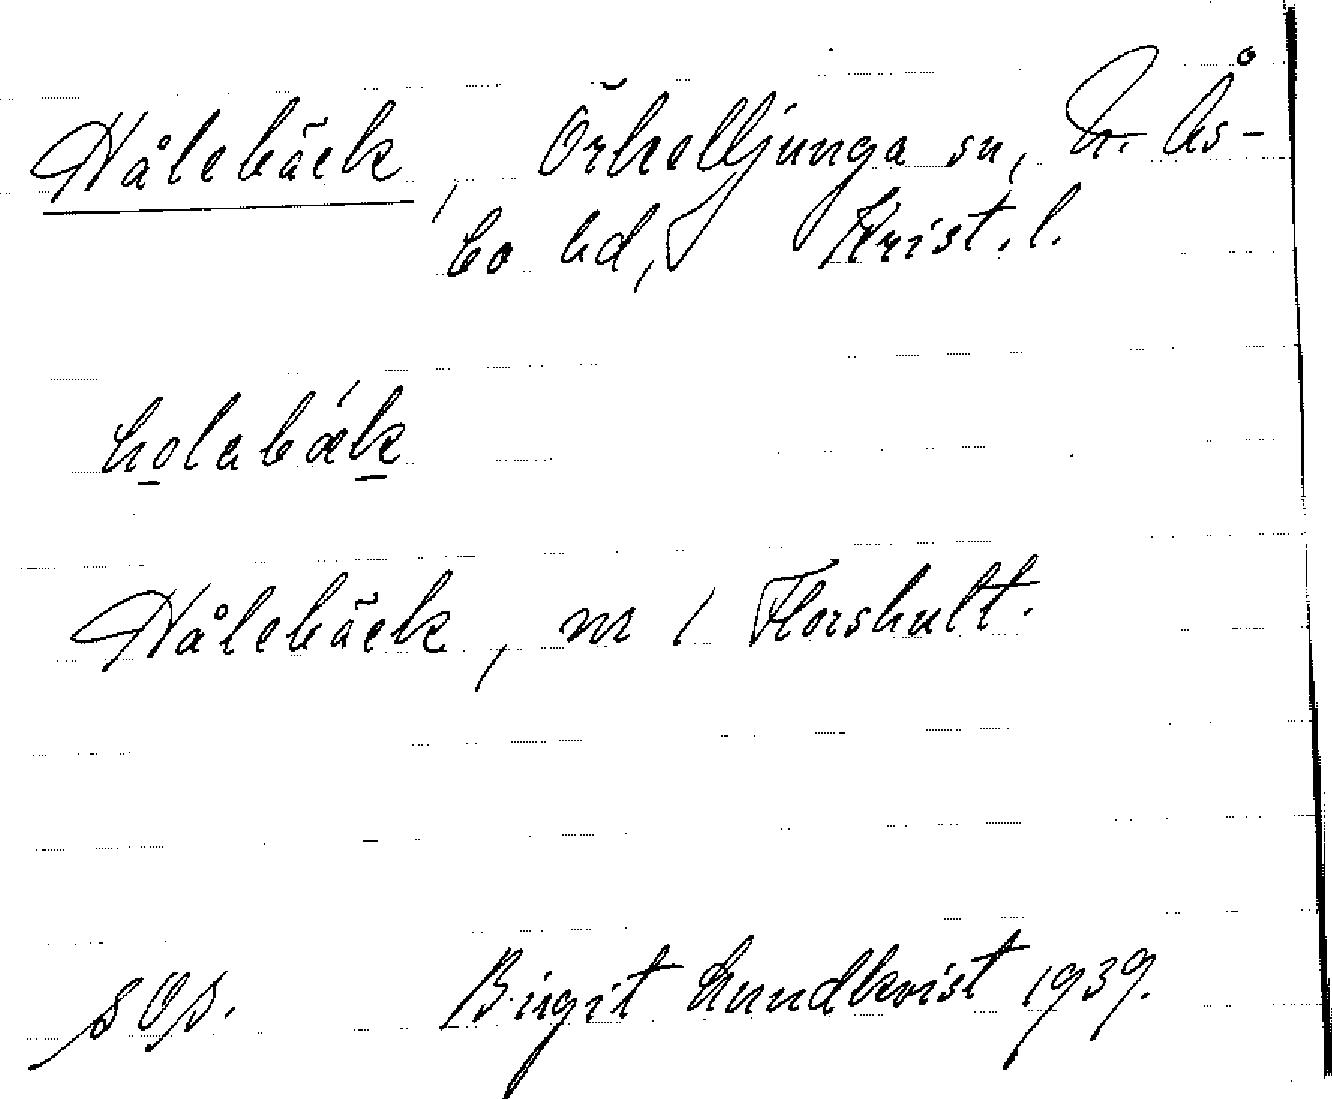 Hålebäck, Örkelljunga sn, N. Ås-
bo hd, Krist. l.
holabǽk
Hålebäck, nr 1 Florshult.
Birgit Lundkvist 1939.